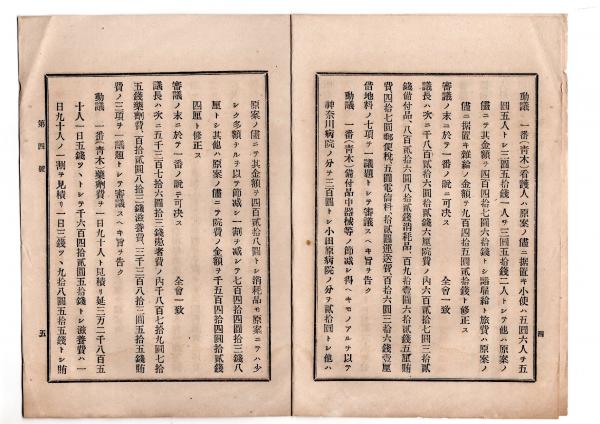 動議　一番(青木)看護人ハ原案ノ儘ニ据置キ小使ハ五圓六人ヲ五
圓四五人トシ二圓五拾錢一人ヲ三圓五拾錢二人トシテ他ハ原案ノ
儘ニテ其金額ヲ四百四拾七圓六拾錢トシ諸雇給ト旅費ハ原案ノ
儘ニ据置キ雜給ノ金額ヲ九百四拾五圓貳拾錢ト修正ス
審議ノ末ニ於テ一番ノ説ニ可决ス　　　　全會一致
議長ハ次ニ五千八百貳拾六圓拾貳錢六厘院費ノ内六百貳拾七圓三拾貳
錢備付品、八百貳拾六圓八拾貳錢消耗品、百九拾壹圓六拾貳錢五厘賄
費四拾七圓郵便税、五圓電信料、拾貳圓運送費、百拾六圓三拾六錢壹厘
借地料ノ七項ヲ一議題トシテ審議スヘキ旨ヲ告ク
動議　一番(青木)備付品中器械等ノ節减シ得ヘキモノアルヲ以テ
神奈川病院ノ分ヲ三百圓トシ小田原病院ノ分ヲ貳拾圓トシ他ハ
四
原案ノ儘ニテ其金額ヲ四百貳拾八圓トシ消耗品モ原案ニテハ少
シク多額ナルヲ以テ節减シ一割ヲ减シテ七百四拾四圓拾三錢八
厘トシ其他ハ原案ノ儘ニテ院費ノ金額ヲ千五百四拾四圓拾貳錢
四厘ト修正ス
審議ノ末ニ於テ一番ノ説ニ可决ス　　　　全會一致
議長ハ次ニ五千三百七拾六圓拾三錢患者費ノ内千八百七拾九圓七拾
五錢藥劑費、百拾貳圓八拾三錢滋養費、三千三百八拾三圓五拾五錢賄
費ノ三項ヲ一議題トシテ審議スヘキ旨ヲ告ク
動議　一番(青木)藥劑費ヲ一日九十人ト見積リ延三万二千八百五
十人一日五錢ツヽトシテ千六百四拾貳圓五拾錢トシ滋養費ハ一
日九十人ノ一割ヲ見積リ一日三錢ツヽ九拾八圓五拾五錢トシ賄
第四號
五